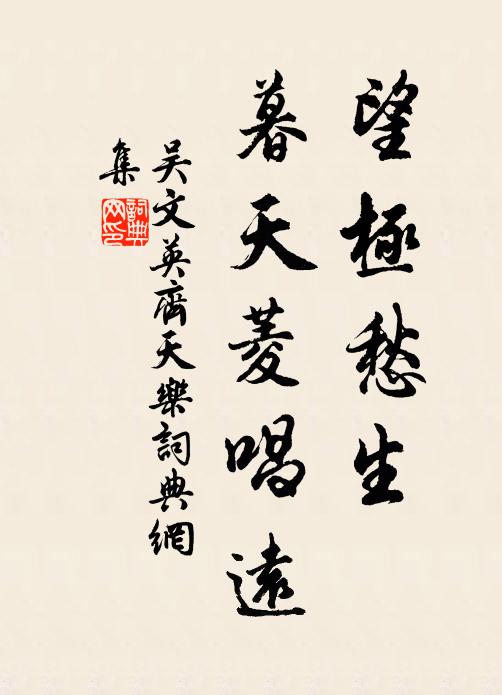 望極愁生
暮天菱唱遠
吳文英齊天樂詞典網
集
詞典網印